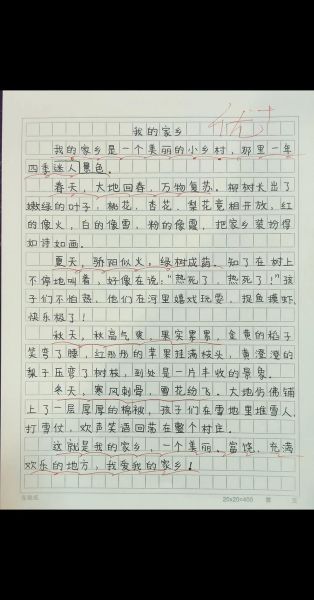 优+
我的家乡
我的家乡是一个美丽的小乡村，那里一年
四季迷人景色。
春天，大地回春，万物复苏。柳树长出了
嫩绿的叶子，桃花、杏花、梨花竞相开放，红
的像火，白的像雪，粉的像霞，把家乡装扮得
如诗如画。
夏天，骄阳似火，绿树成荫。知了在树上
不停地叫着，好像在说："热死了，热死了！"孩
子们不怕热，他们在河里嬉戏玩耍，捉鱼摸虾，
快乐极了！
秋天，秋高气爽，果实累累，金黄的稻子
笑弯了腰，红彤彤的苹果挂满枝头，黄澄澄的
梨子压弯了树枝，到处是一片丰收的景象。
冬天，寒风刺骨，雪花纷飞。大地仿佛铺
上了一层厚厚的棉被，孩子们在雪地里堆雪人，
打雪仗，欢声笑语回荡在整个村庄。
这就是我的家乡，一个美丽、富饶、充满
欢乐的地方，我爱我的家乡！
20×20=400 第 页